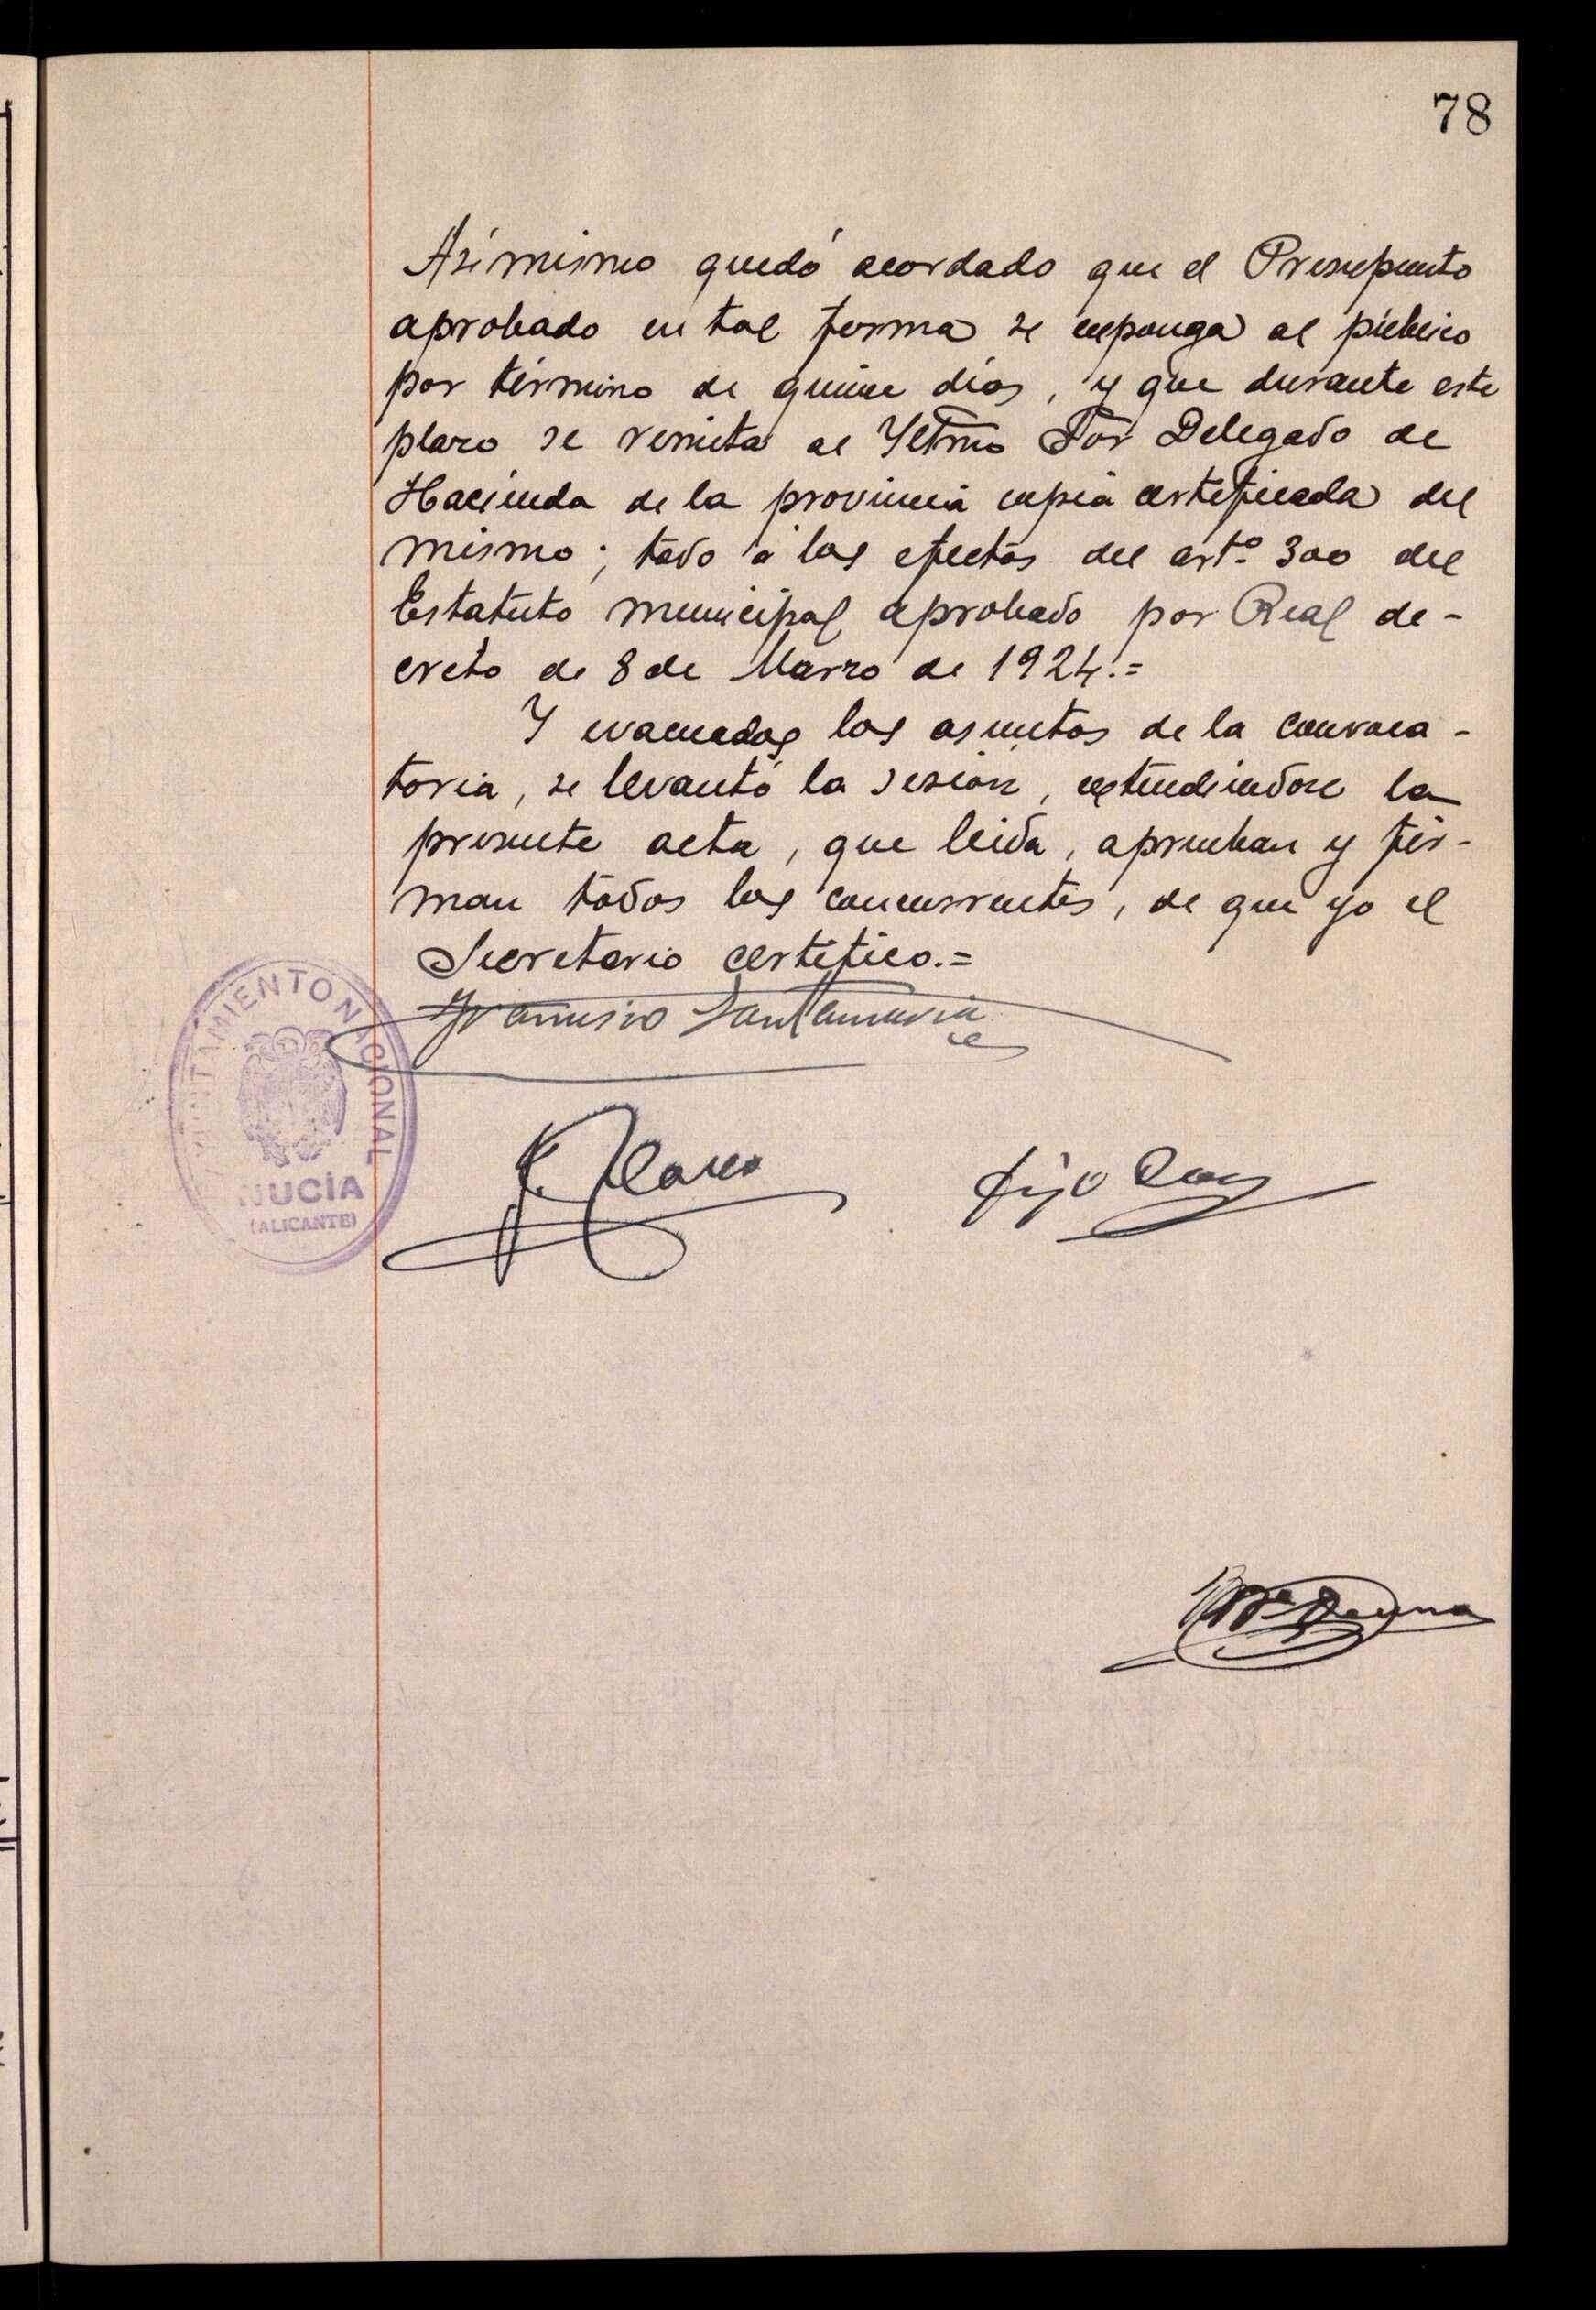 78
Asimismo quedó acordado que el Presupuesto
aprobado en tal forma se exponga al público
por término de quince días, y que durante este
plazo se remita al Yltmo Sor Delegado de
Hacienda de la provincia copia certificada del
mismo; todo á los efectos del artº 300 del
Estatuto municipal aprobado por Real de-
creto de 8 de Marzo de 1924.=
Y evacuados los asuntos de la convoca-
toria, se levantó la sesión, extendiendose la
presente acta, que leida, aprueban y fir-
man todos los concurrentes, de que yo el
Secretario certifico.=
Francisco Santamaria
NTAMIENTO NACIONAL
NUCÍA
(ALICANTE)